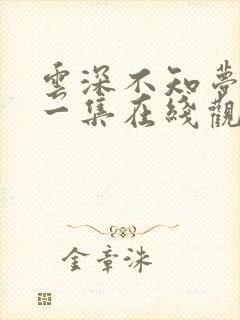 雲深不知夢
一集在綫觀
金章洙